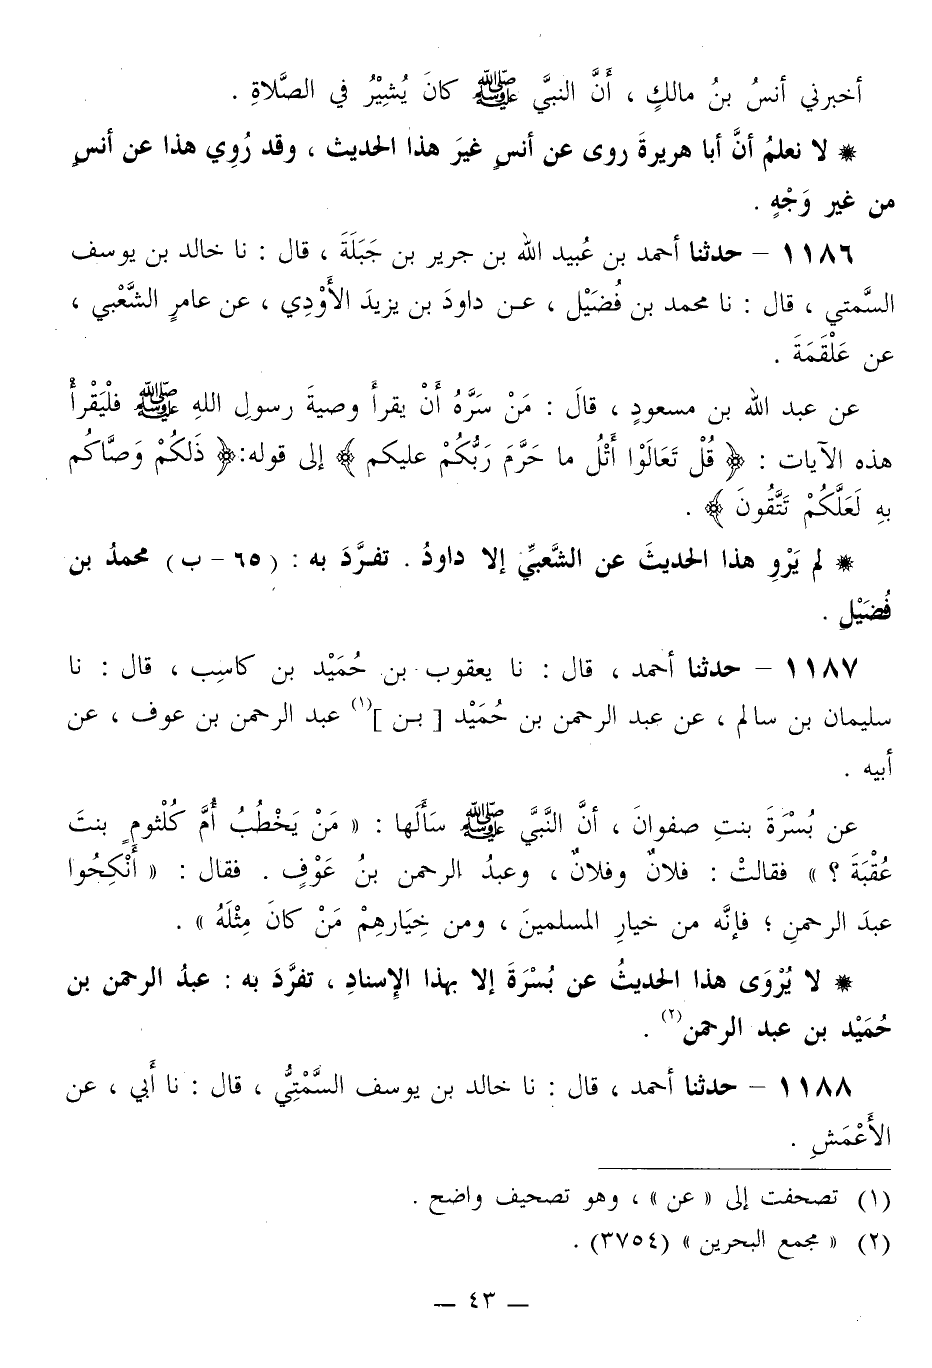 أخبرني أنسُ بنُ مالكٍ ، أَنَّ النبيَّ ﷺ كانَ يُشِيْرُ في الصَّلاةِ .
* لا نعلمُ أنَّ أبا هريرةَ روى عن أنسٍ غيرَ هذا الحديث ، وقد رُوِي هذا عن أنسٍ
من غير وَجْهٍ .
١١٨٦ – حدثنا أحمد بن عُبيد الله بن جرير بن جَبَلَةَ ، قال : نا خالد بن يوسف
السَّمتي ، قال : نا محمد بن فُضَيْل ، عـن داودَ بن يزيدَ الأَوْدِي ، عن عامرٍ الشَّعْبي ،
عن عَلْقَمَةَ .
عن عبد الله بن مسعودٍ ، قالَ : مَنْ سَرَّهُ أَنْ يقرأَ وصيةَ رسولِ اللهِ ﷺ فلْيَقْرأْ
هذه الآيات : ﴿ قُلْ تَعَالَوْا أَتْلُ ما حَرَّمَ رَبُّكُمْ عليكم ﴾ إلى قوله:﴿ ذَلكُمْ وَصَّاكُم
بهِ لَعَلَّكُمْ تَتَّقُونَ ﴾ .
* لم يَرْوِ هذا الحديثَ عن الشَّعبيِّ إلا داودُ . تفـرَّدَ به : (٦٥ – ب) محمدُ بن
فُضَيْلِ .
١١٨٧ – حدثنا أحمد ، قال : نا يعقوب بن حُمَيْد بن كاسِب ، قال : نا
سليمان بن سالم ، عن عبد الرحمن بن حُمَيْد [ بـن ](١) عبد الرحمن بن عوف ، عن
أبيه .
عن بُسْرَةَ بنتِ صفوانَ ، أنَّ النَّبيَّ ﷺ سَأَلَها : « مَنْ يَخْطُبُ أُمَّ كُلْثومٍ بنتَ
عُقْبَةَ ؟ » فقالتْ : فلانٌ وفلانٌ ، وعبدُ الرحمن بنُ عَوْفٍ . فقال : « أَنْكِحُوا
عبدَ الرحمنِ ؛ فإنَّه من خيارِ المسلمينَ ، ومن خِيَارِهِمْ مَنْ كانَ مِثْلَهُ » .
* لا يُرْوَى هذا الحديثُ عن بُسْرَةَ إلا بهذا الإسنادِ ، تفرَّدَ به : عبدُ الرحمن بن
حُمَيْد بن عبد الرحمن(٢) .
١١٨٨ – حدثنا أحمد ، قال : نا خالد بن يوسف السَّمْتِيُّ ، قال : نا أَبي ، عن
الأَعْمَشِ .
(١) تصحفت إلى « عن » ، وهو تصحيف واضح .
(٢) « مجمع البحرين » (٣٧٥٤) .
— ٤٣ —